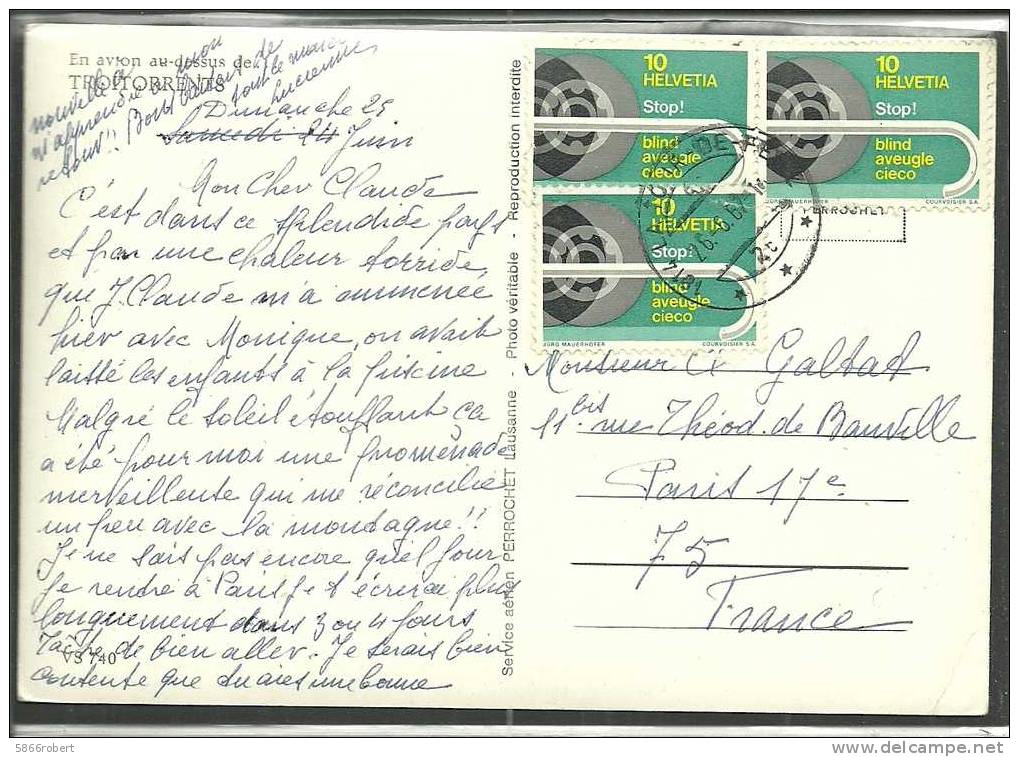 En avion au-dessus de
TROITORRENTS
Dimanche 25
Samedi 24 Juin
Mon Cher Claude
C'est dans ce splendide pays
et par une chaleur torride,
que J. Claude m'a emmenée
hier avec Monique, on avait
laissé les enfants à la piscine
Malgré le soleil étouffant ça
a été pour moi une promenade
merveilleuse qui me réconcilie
un peu avec la montagne!!
Je ne sais pas encore quel jour
je rendre à Paris je t'écrirai plus
longuement dans 3 ou 4 jours
Tâche de bien aller. Je serais bien
contente que tu aies une bonne
nouvelle à
m'apprendre à mon
retour!! Bons baisers de
tout le monde
Lucienne
VS 740
Service aérien PERROCHET Lausanne - Photo véritable - Reproduction interdite
10
HELVETIA
Stop!
blind
aveugle
cieco
COURVOISIER S.A.
10
HELVETIA
Stop!
blind
aveugle
cieco
JÜRG MAUERHOFER COURVOISIER S.A.
10
HELVETIA
Stop!
blind
aveugle
cieco
JÜRG MAUERHOFER COURVOISIER S.A.
PERROCHET
Monsieur Galtat
11 bis rue Théod. de Banville
Paris 17e
75
France
5866robert
www.delcampe.net